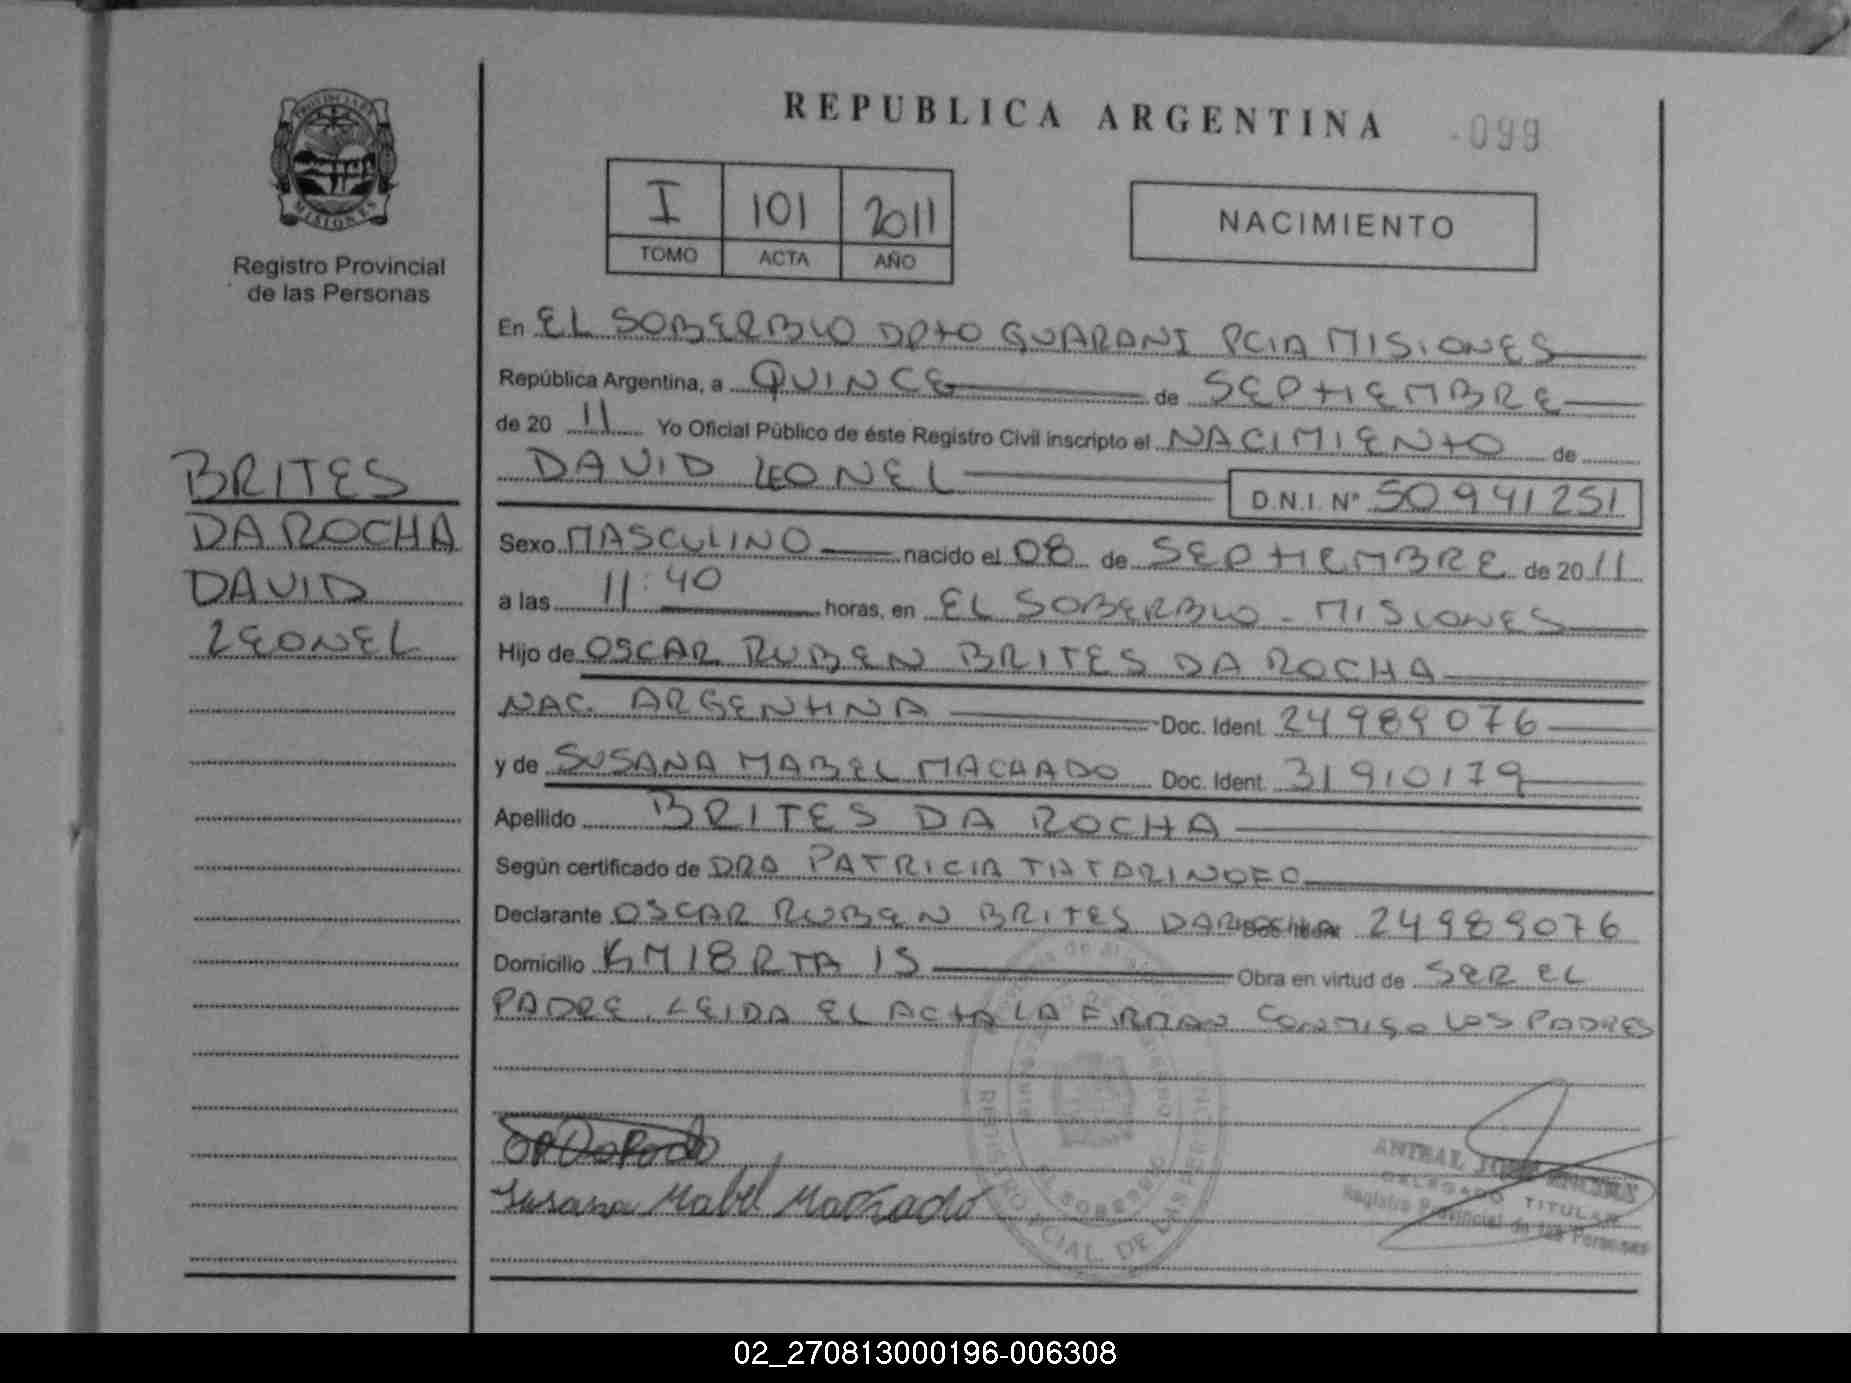 REPUBLICA ARGENTINA
099
PROVINCIA DE
MISIONES
Registro Provincial
de las Personas
I 101 2011
TOMO ACTA AÑO
NACIMIENTO
En EL SOBERBIO DPTO GUARANI PCIA MISIONES
República Argentina, a QUINCE de SEPTIEMBRE
de 20 11 Yo Oficial Público de éste Registro Civil inscripto el NACIMIENTO de
DAVID LEONEL
D.N.I. Nº 50941251
BRITES
DA ROCHA
DAVID
LEONEL
Sexo MASCULINO nacido el 08 de SEPTIEMBRE de 20 11
a las 11:40 horas, en EL SOBERBIO - MISIONES
Hijo de OSCAR RUBEN BRITES DA ROCHA
NAC. ARGENTINA Doc. Ident. 24989076
y de SUSANA MABEL MACHADO Doc. Ident. 31910179
Apellido BRITES DA ROCHA
Según certificado de DRA PATRICIA
Declarante OSCAR RUBEN BRITES DA ROCHA 24989076
Domicilio KM 18 RTA 15 Obra en virtud de SER EL
PADRE. LEIDA EL ACTA LA FIRMAN CONMIGO LOS PADRES
Susana Mabel Machado
EL SOBERBIO
DELEGADO TITULAR
Registro Provincial de las Personas
02_270813000196-006308